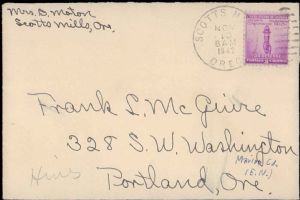 Mrs. B. Moton
Scotts Mills, Ore.
SCOTTS M
NOV
8 AM
1942
OREG
Frank L. McGuire
328 S.W. Washington
Portland, Ore.